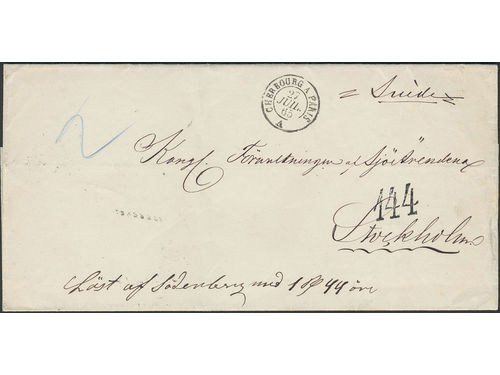 CHERBOURG A PARIS
27
JUIL.
65
A
= Suède =
2
Kongl. Förvaltningen af Sjöärendena
144
Stockholm
Löst af Söderberg med 1 Rd 44 öre